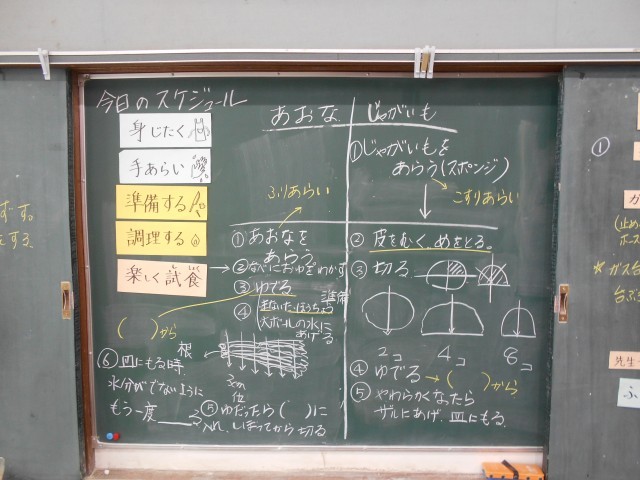 今日のスケジュール
身じたく
手あらい
準備する
調理する
楽しく試食
あおな
じゃがいも
①じゃがいもを
あらう(スポンジ)
こすりあらい
ふりあらい
①あおなを
あらう。
②なべにおゆをわかす
③ゆでる
④まないたほうちょう
準備
大ボールの水に
あげる
( )から
根
3cm
位
⑤ゆだったら( )に
入れ、しぼってから切る
⑥皿にもる時、
水分がでないように
もう一度
②皮をむく、めをとる。
③切る
2コ
4コ
8コ
④ゆでる→( )から
⑤やわらかくなったら
ザルにあげ、皿にもる。
①
ガ
(止め
ホー
*ガス台
台ぶ
先生
ふ
ずす。
する。